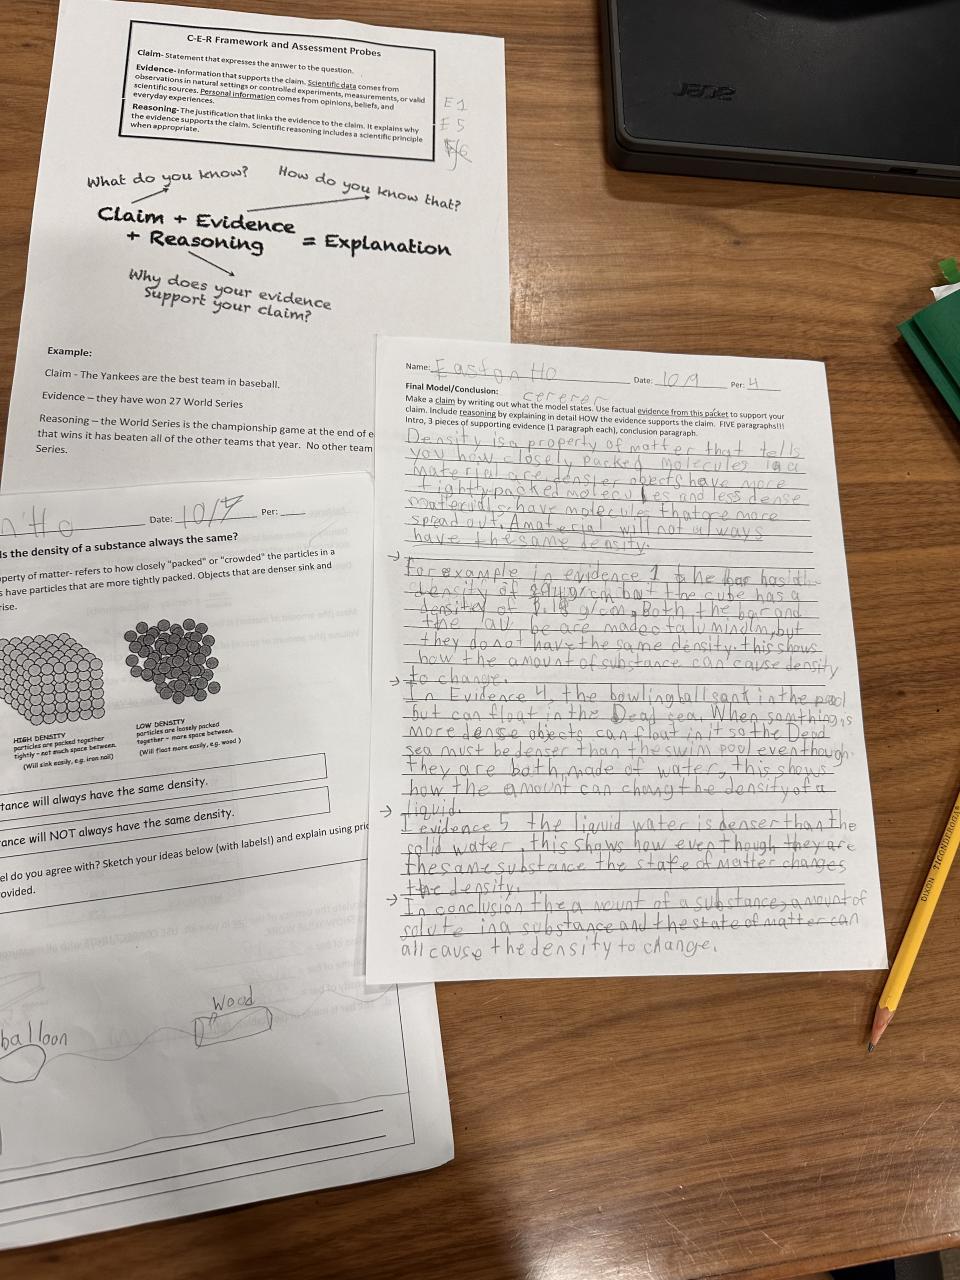 C-E-R Framework and Assessment Probes
Claim- Statement that expresses the answer to the question.
Evidence- Information that supports the claim. Scientific data comes from
observations in natural settings or controlled experiments, measurements, or valid
scientific sources. Personal information comes from opinions, beliefs, and
everyday experiences.
Reasoning- The justification that links the evidence to the claim. It explains why
the evidence supports the claim. Scientific reasoning includes a scientific principle
when appropriate.
E1
E5
What do you know?
How do you know that?
Claim + Evidence
+ Reasoning
= Explanation
Why does your evidence
support your claim?
Example:
Claim - The Yankees are the best team in baseball.
Evidence – they have won 27 World Series
Reasoning – the World Series is the championship game at the end of
that wins it has beaten all of the other teams that year. No other team
Series.
acer
Name: Easton Ho Date: 10/9 Per: 4
Final Model/Conclusion: cererer
Make a claim by writing out what the model states. Use factual evidence from this packet to support your
claim. Include reasoning by explaining in detail HOW the evidence supports the claim. FIVE paragraphs!!!
Intro, 3 pieces of supporting evidence (1 paragraph each), conclusion paragraph.
Density is a property of matter that tells
you how closely packed molecules in a
material are. denser objects have more
tightly packed molecules and less dense
materials have molecules that are more
spread out. A material will not always
have the same density.
For example in evidence 1 the bar has a
density of g/cm but the cube has a
density of g/cm. Both the bar and
the are made of aluminum, but
they do not have the same density. this shows
how the amount of substance can cause density
to change.
In Evidence 4, the bowling ball sank in the pool
but can float in the Dead sea. When somthing is
more dense objects can float in it so the Dead
sea must be denser than the swim pool even though
they are both made of water, this shows
how the amount can chang the density of a
liquid.
I evidence 5 the liquid water is denser than the
solid water, this shows how even though they are
the same substance the state of matter changes
the density.
In conclusion the amount of a substance, amount of
solute in a substance and the state of matter can
all cause the density to change.
n Ho Date: 10/7 Per:
Is the density of a substance always the same?
perty of matter- refers to how closely "packed" or "crowded" the particles in a
s have particles that are more tightly packed. Objects that are denser sink and
rise.
HIGH DENSITY
particles are packed together
tightly - not much space between.
(Will sink easily, e.g. iron nail)
LOW DENSITY
particles are loosely packed
together - more space between.
(Will float more easily, e.g. wood )
tance will always have the same density.
ance will NOT always have the same density.
el do you agree with? Sketch your ideas below (with labels!) and explain using pri
ovided.
Wood
balloon
DIXON TICONDEROGA